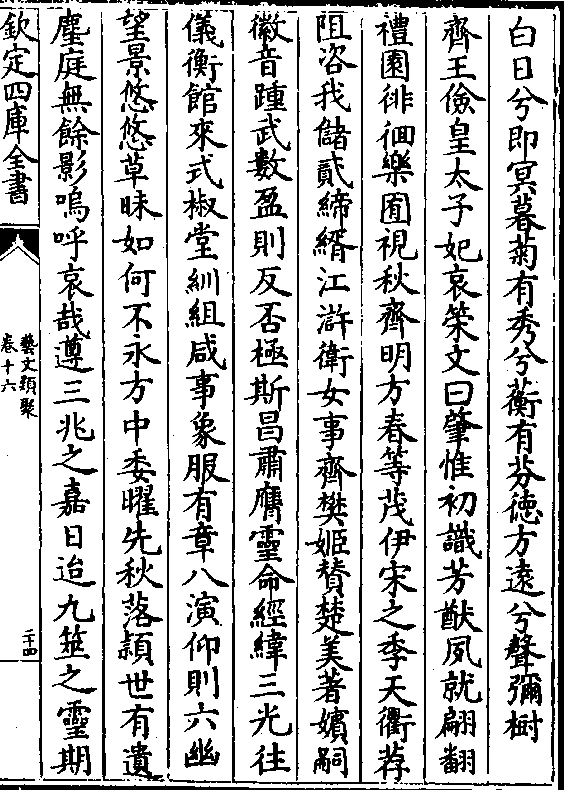 白日兮即冥暮菊有秀兮蘅有芬德方遠兮聲彌樹
齊王儉皇太子妃哀䇿文曰肇惟初識芳猷夙就翩翻
禮園徘徊樂囿視秋齊明方春等茂伊宋之季天衢荐
阻咨我儲貳締緍江滸衛女事齊樊姬賛楚美著嬪嗣
徽音踵武數盈則反否極斯昌肅膺靈命經緯三光往
儀衡館來式椒堂紃組咸事象服有章八演仰則六幽
望景悠悠草昧如何不永方中委曜先秋落頴世有遺
塵庭無餘影嗚呼哀哉遵三兆之嘉日迨九筮之靈期
欽定四庫全書
藝文類聚
卷十六
二十四